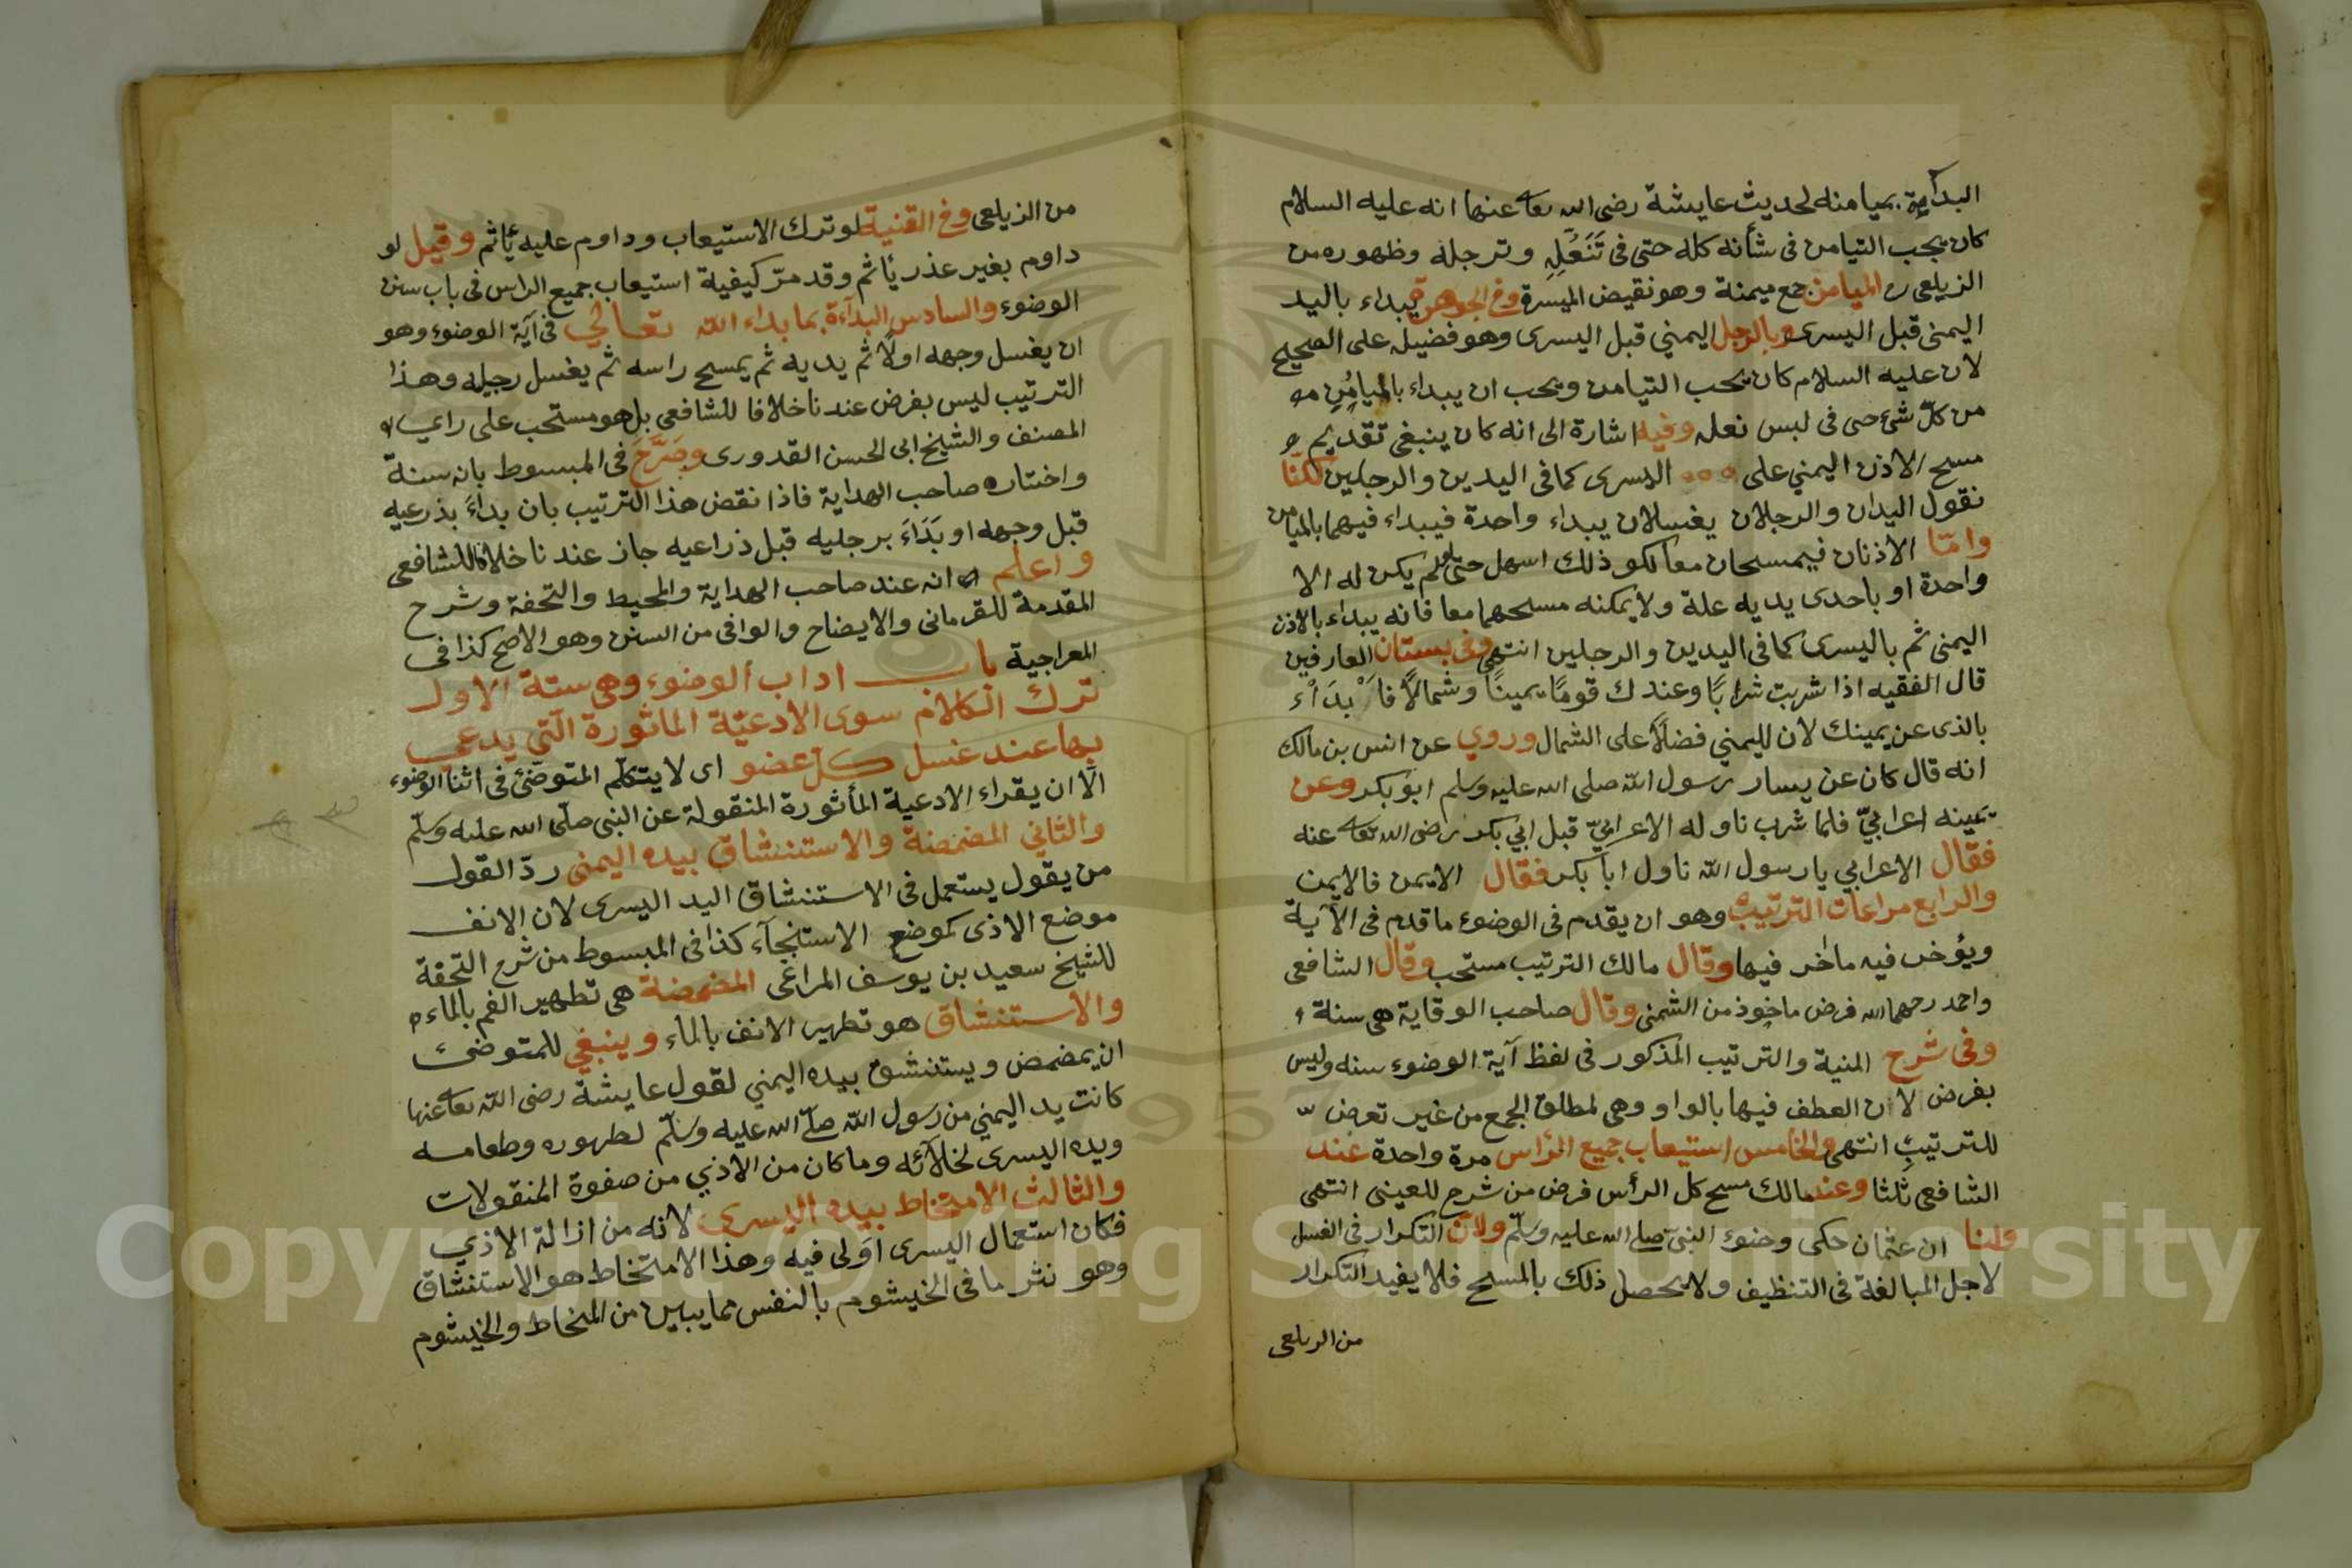 البداية بميامنه لحديث عايشة رضى الله تعا عنها انه عليه السلام
كان يجب التيامن فى شأنه كله حتى فى تَنَعُّلِهِ وترجله وظهوره من
الزيلعى ره الميامن جمع ميمنة وهو نقيض الميسرة وفي الجوهرة يبداء باليد
اليمنى قبل اليسرى وبالرجل اليمني قبل اليسرى وهو فضيله على الصحيح
لان عليه السلام كان يحب التيامن ويحب ان يبداء بالميامُنِ
من كلّ شئ حتى فى لبس نعله وفيه اشارة الى انه كان ينبغى تقديم
مسح الاذن اليمني على اليسرى كما فى اليدين والرجلين لكنّا
نقول اليدان والرجلان يغسلان يبداء واحدة فيبداء فيهما بالميامن
وامّا الاذنان فيمسحان معا لكو ذلك اسهل حتى لولم يكن له الا
واحدة او باحدى يديه علة ولايمكنه مسحهما معا فانه يبداء بالاذن
اليمنى ثم باليسرى كما فى اليدين والرجلين انتهى وفى بستان العارفين
قال الفقيه اذا شربت شرابًا وعندك قومًا يمينًا وشمالًا فابْدَاْء
بالذى عن يمينك لان لليمني فضلاً على الشمال وروي عن انس بن مالك
انه قال كان عن يسار رسول الله صلى الله عليه وسلم ابوبكر وعن
يمينه اعرابيّ فلما شرب ناوله الاعرابيّ قبل ابي بكر رضى الله تعا عنه
فقال الاعرابي يا رسول الله ناول ابا بكر فقال الايمن فالايمن
والرابع مراعات الترتيب وهو ان يقدم فى الوضوء ما قدم فى الآية
ويؤخر فيه ما اخر فيها وقال مالك الترتيب مستحب وقال الشافعى
واحمد رحمهما الله فرض ماخوذ من الشمنى وقال صاحب الوقاية هى سنة
وفى شرح المنية والترتيب المذكور فى لفظ آية الوضوء سنه وليس
بفرض لان العطف فيها بالواو وهى لمطلق الجمع من غير تعرض
للترتيب انتهى والخامس استيعاب جميع الرأس مرة واحدة عند
الشافعى ثلثا وعند مالك مسح كل الرأس فرض من شرح للعينى انتهى
ولنا ان عثمان حكى وضوء النبى صلى الله عليه وسلّم ولان التكرار فى الغسل
لاجل المبالغة فى التنظيف ولا يحصل ذلك بالمسح فلا يفيد التكرار
من الزيلعى
من الزيلعى وفي القنية لو ترك الاستيعاب وداوم عليه يأثم وقيل لو
داوم بغير عذر يأثم وقد مرّ كيفية استيعاب جميع الراس فى باب سنن
الوضوء والسادس البدآءة بما بداء الله تعالي فى آية الوضوء وهو
ان يغسل وجهه اولًا ثم يديه ثم يمسح راسه ثم يغسل رجليه وهذا
الترتيب ليس بفرض عندنا خلافا للشافعى بل هو مستحب على راي
المصنف والشيخ ابى الحسن القدورى وصَرَّحَ فى المبسوط بانه سنة
واختاره صاحب الهداية فاذا نقض هذا الترتيب بان بداءَ بذرعيه
قبل وجهه او بَدَاءَ برجليه قبل ذراعيه جاز عندنا خلافا للشافعى
واعلم انه عند صاحب الهداية والمحيط والتحفة وشرح
المقدمة للقرمانى والايضاح والوافى من السنن وهو الاصح كذا فى
المعراجية باب اداب الوضوء وهى ستة الاول
ترك الكلام سوى الادعيّة الماثورة الّتي يدعي
بها عند غسل كلّ عضو اى لا يتكلّم المتوضّئ فى اثنا الوضوء
الّا ان يقراء الادعية المأثورة المنقولة عن النبى صلّى الله عليه وسلّم
والثاني المضمضة والاستنشاق بيده اليمنى ردّ القول
من يقول يستعمل فى الاستنشاق اليد اليسرى لان الانف
موضع الاذى كموضع الاستنجآء كذا فى المبسوط من شرح التحفة
للشيخ سعيد بن يوسف المراغى المضمضة هى تطهير الفم بالماء
والاستنشاق هو تطهير الانف بالماء وينبغي للمتوضئ
ان يمضمض ويستنشق بيده اليمني لقول عايشة رضى الله تعا عنها
كانت يد اليمني من رسول الله صلّى الله عليه وسلّم لطهوره وطعامه
ويده اليسرى لخلآئه وما كان من الاذي من صفوة المنقولات
والثالث الامتخاط بيده اليسرى لانه من ازالة الاذي
فكان استعمال اليسرى اولى فيه وهذا الامتخاط هو الاستنشاق
وهو نثر ما فى الخيشوم بالنفس مما يبس من المخاط والخيشوم
Copyright © King Saud University
1957